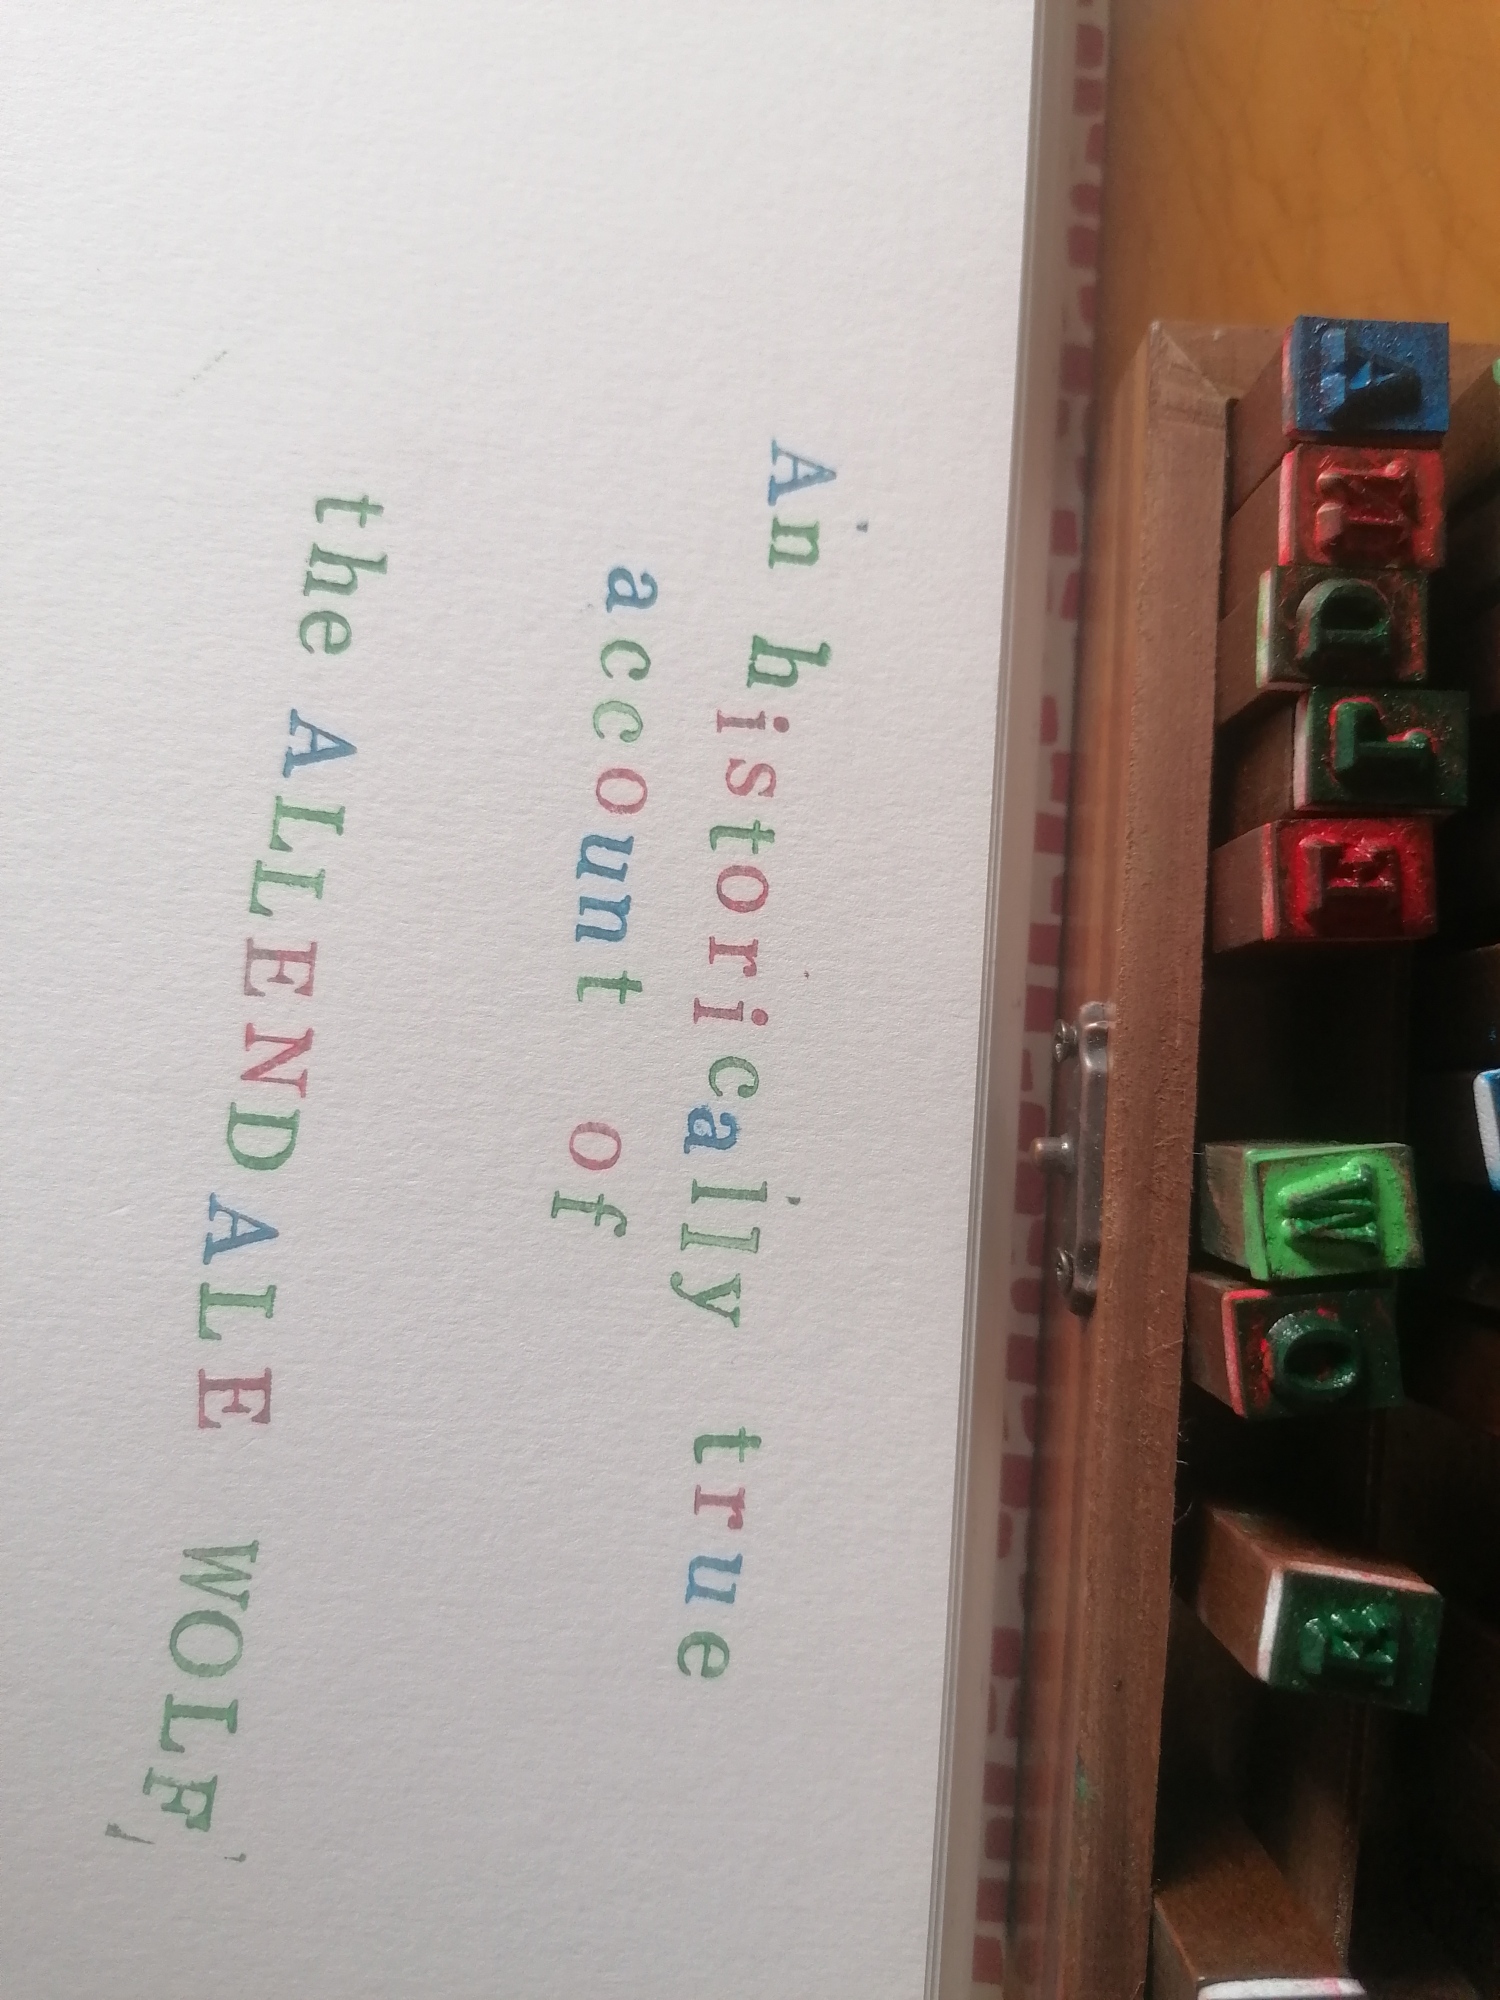 An historically true
account of
the ALLENDALE WOLF,
A
N
D
L
E
W
O
F